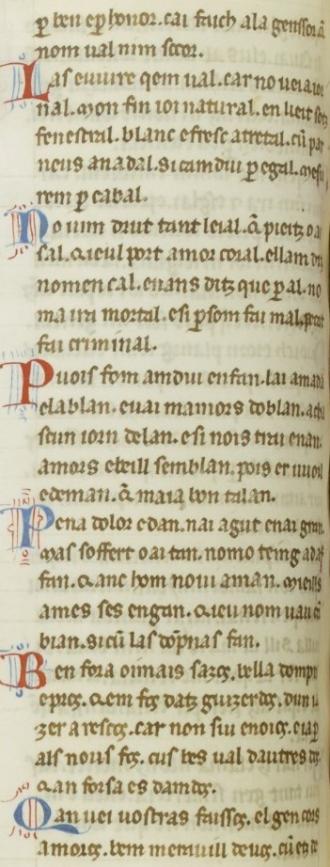 ꝑ ben eꝑ honor. cai fauch ala genssor. 
nom ual nim socor.
Las euiure qem ual. car no ueia ioi
nal. mon fin ioi natural. en lieit sotz
fenestral. blanc efresc atretal. cū par
neus anadal. si cam dui ꝑ egal. mesu
rem ꝑ cabal.
No uim drut tant leial. q̄ pieitz o a
sal. q̄ ieul port amor coral. ellam diz
nomen cal. enans ditz que ꝑ al. no
ma ira mortal. e si ꝑsom fai mal. pecat
fai criminal.
Puois fom amdui enfan. lai amada
elablan. euai mamors doblan. acha
scun iorn delan. e si nois trai enan.
amors ebeill semblan. pois er uuoil
e deman. q̄ maia bon talan.
Pena dolor edan. nai agut enai gran.
mas soffert o ai tan. nomo teing ad af
fan. & anc hom noui aman. mieills
ames ses engan. & ieu nom uau cā
bian. si cū las dōpnas fan.
Ben fora oimais sazos. bella dompn
epros. & em fos datz guizerdos. dun ba
zer a rescos. car non siu enoios. eia ꝑ
als nous fos. cus bes ual dautres dos
& an forsa es damdos.
Qan uei uostras faissos. el gen cors
amoros. bem merauill deuos. cū etz de